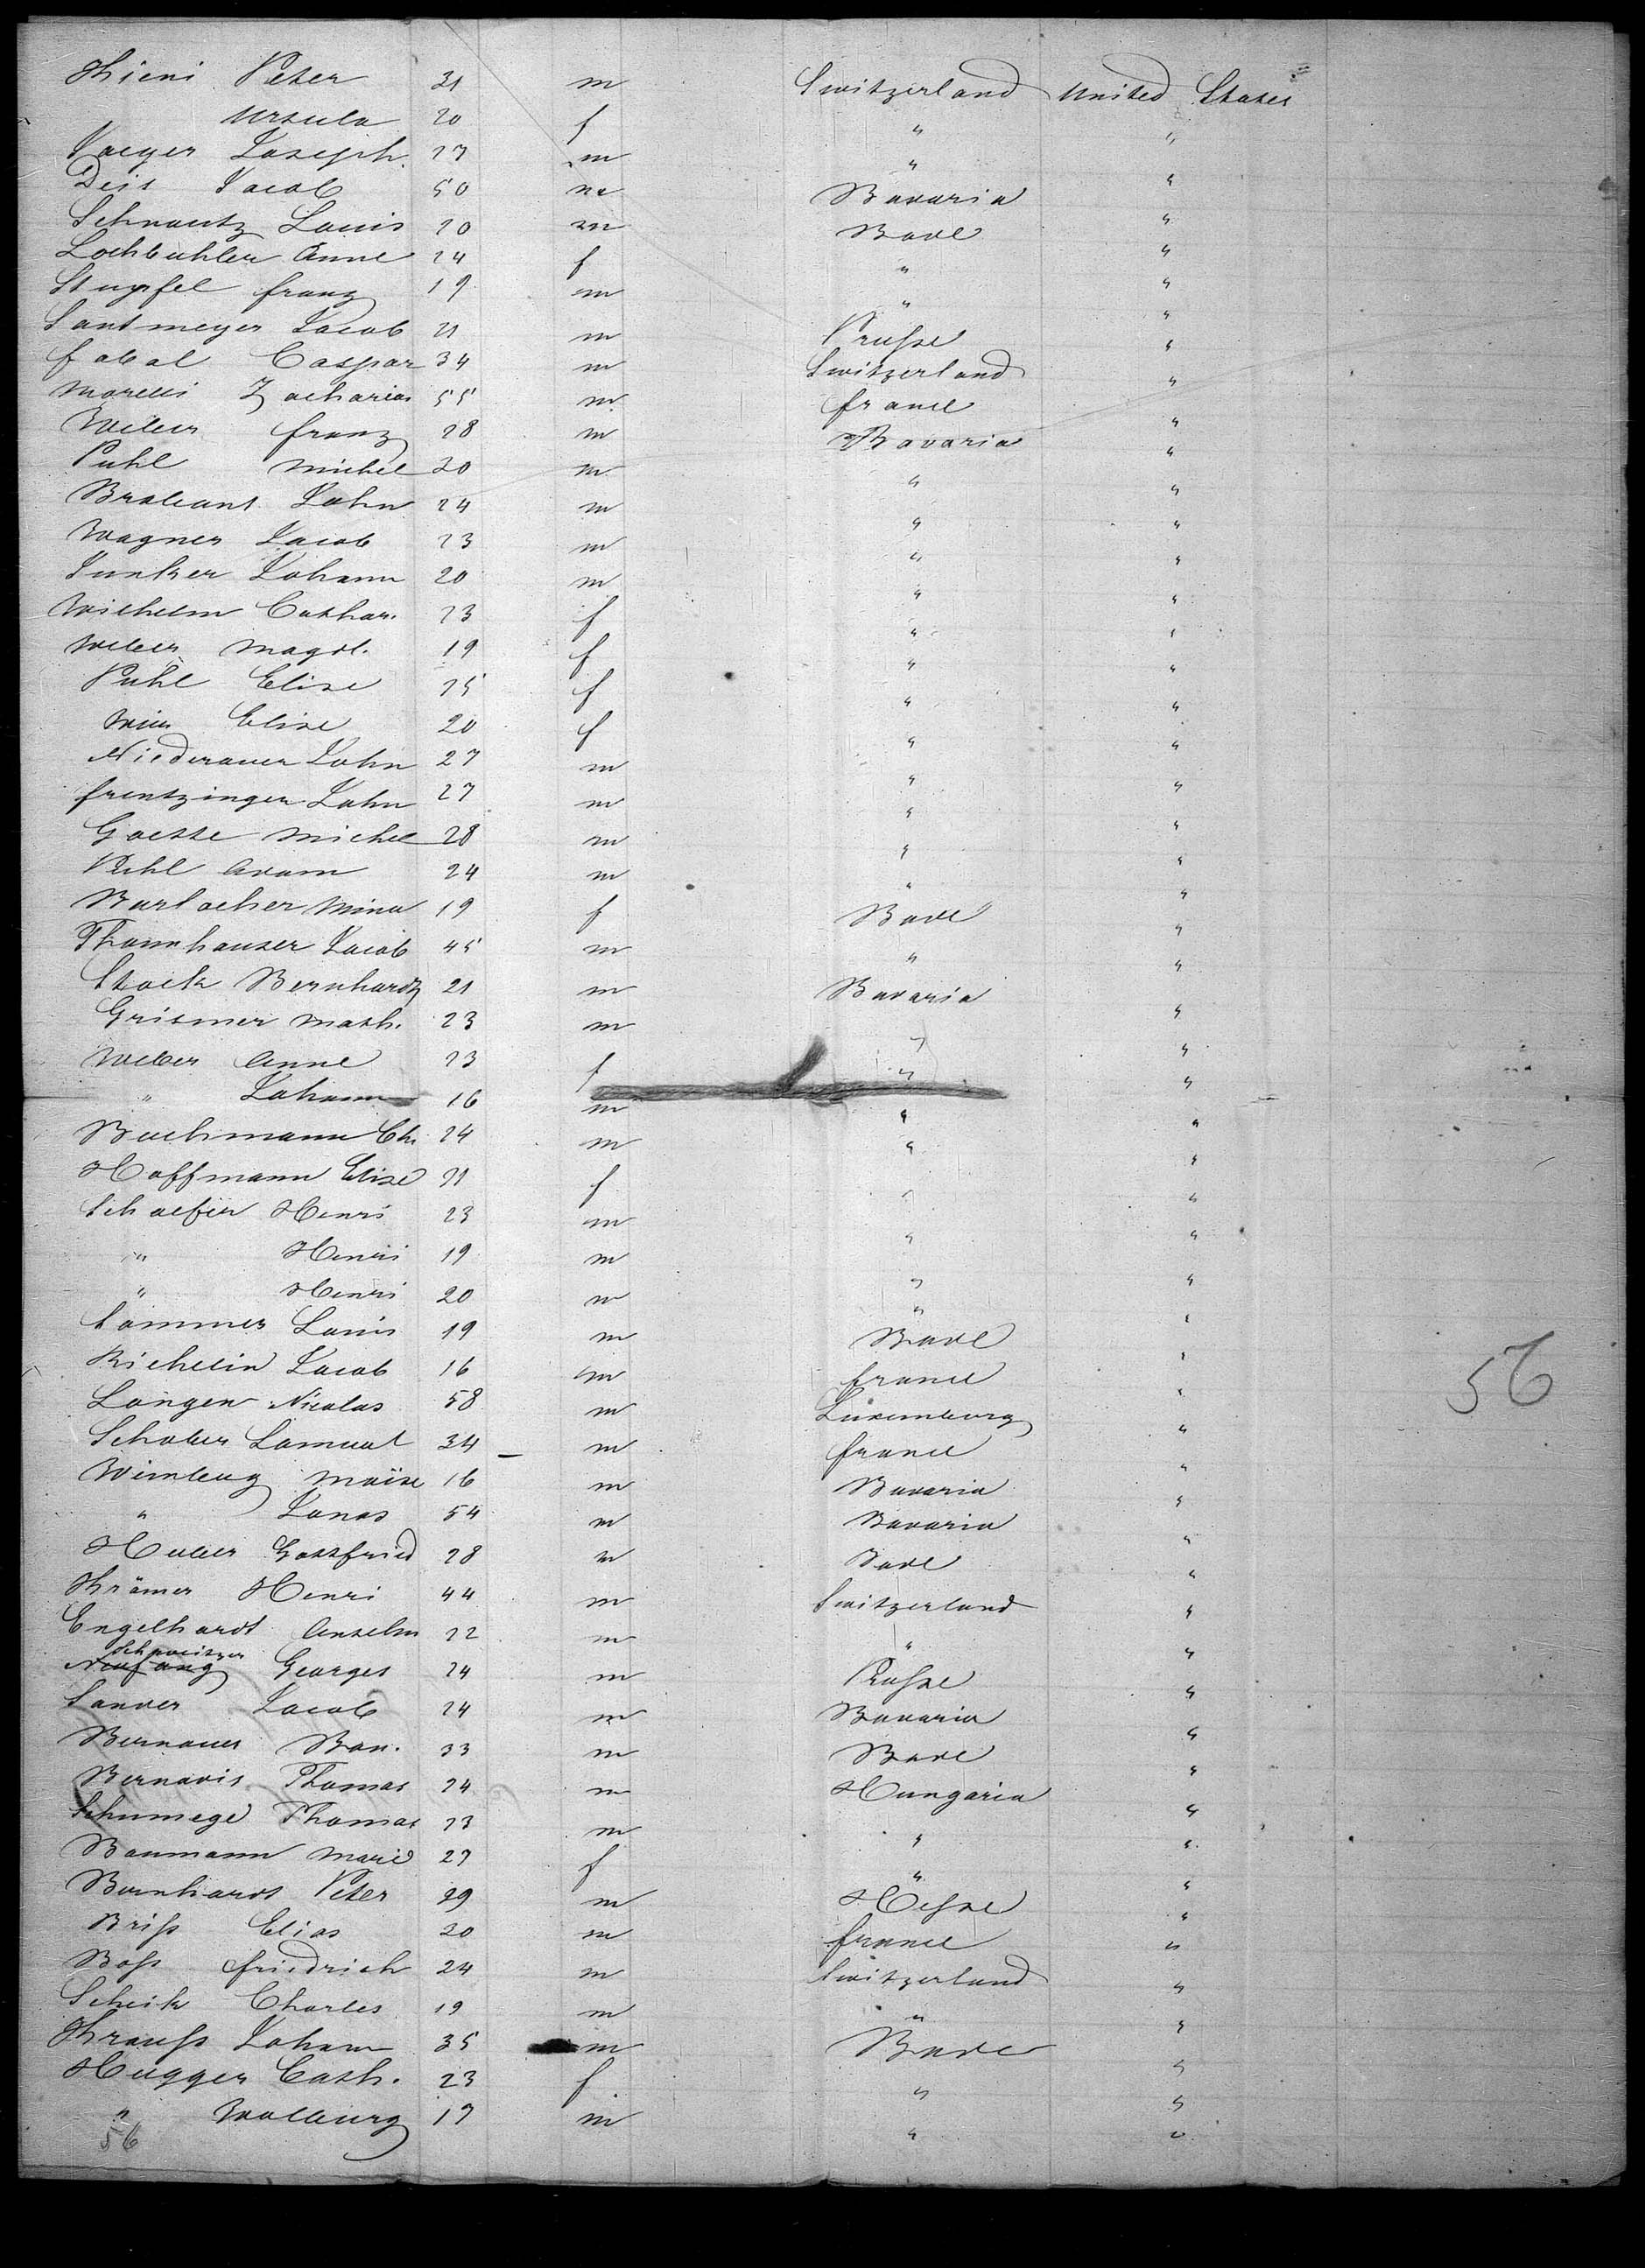 Thieni Peter 31 m Switzerland United States
Ursula 20 f " "
Jaeger Joseph 27 m " "
Deis Jacob 50 m Bavaria "
Schnautz Louis 20 m Bade "
Lochbuhler Anne 24 f " "
Stupfel franz 19 m " "
Santmeyer Jacob 21 m Prusse "
fabal Caspar 34 m Switzerland "
Morelli Zacharias 55 m france "
Weber franz 28 m Bavaria "
Puhl Michel 20 m " "
Brabant John 24 m " "
Wagner Jacob 23 m " "
Junker Johann 20 m " "
Wilhelm Cathar. 23 f " "
Weber Magd. 19 f " "
Puhl Elise 25 f " "
Elise 20 f " "
Niederauer John 27 m " "
frentzinger John 27 m " "
Goette Michel 28 m " "
Puhl Adam 24 m " "
Burlacher Mina 19 f Bade "
Thannhauser Jacob 45 m " "
Stock Bernhardt 21 m Bavaria "
Grismer Math. 23 m " "
Weber Anne 23 f " "
" Johann 16 m " "
Bachmann Ch. 24 m " "
Hoffmann Elise 21 f " "
Schaefer Henri 23 m " "
" Henri 19 m " "
" Henri 20 m " "
Sammer Louis 19 m Bade "
Richelin Jacob 16 m france "
Langen Nicolas 58 m Luxemburg "
Schober Samuel 34 m france "
Wimburg Moïse 16 m Bavaria "
" Jonas 54 m Bavaria "
Huber Gottfried 28 m Bade "
Krämer Henri 44 m Switzerland "
Engelhardt Anselm 22 m " "
Schweitzer
Neufang Georges 24 m Prusse "
Sander Jacob 24 m Bavaria "
Bernauer Ban. 33 m Bade "
Bernavis Thomas 24 m Hungaria "
Schumege Thomas 23 m " "
Baumann Marie 27 f " "
Bernhardt Peter 29 m Hesse "
Briss Elias 20 m france "
Boss friedrich 24 m Switzerland "
Scheik Charles 19 m " "
Krauss Johann 35 m Bade "
Hugger Cath. 23 f " "
" Walburg 17 m " "
56
56